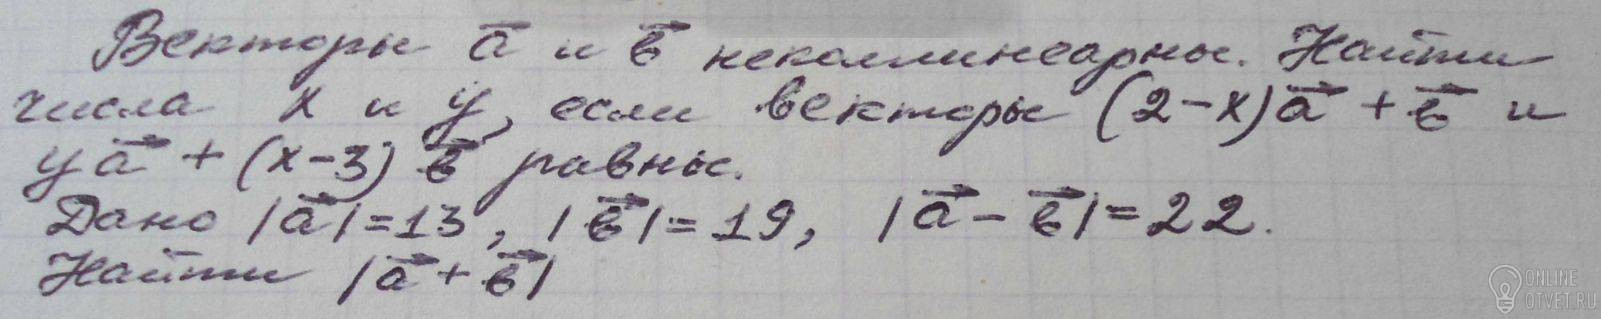 Векторы a⃗ и b⃗ неколлинеарны. Найти
числа x и y, если векторы (2-x)a⃗ + b⃗ и
ya⃗ + (x-3) b⃗ равны.
Дано |a⃗|=13, |b⃗|=19, |a⃗ - b⃗|=22.
Найти |a⃗ + b⃗|
ONLINE
OTVET.RU